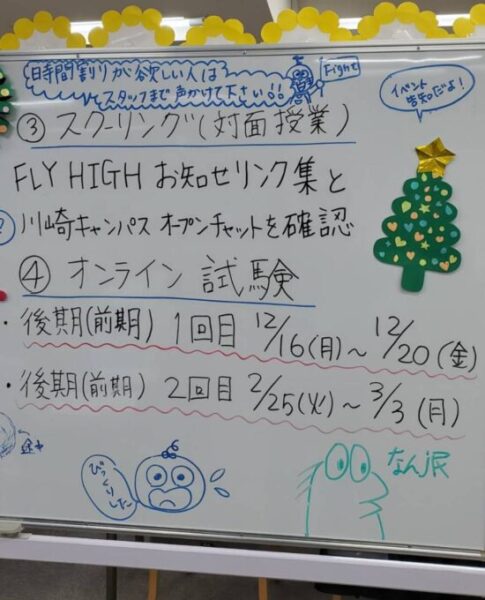 時間割りが欲しい人は
スタッフまで声かけて下さい!!
Fight
イベント
告知だよ!
③ スクーリング(対面授業)
FLY HIGH お知せリンク集と
川崎キャンパス オープンチャットを確認
④ オンライン試験
・後期(前期) 1回目 12/16(月)~12/20(金)
・後期(前期) 2回目 2/25(火)~3/3(月)
びっくり
した
なんJ民